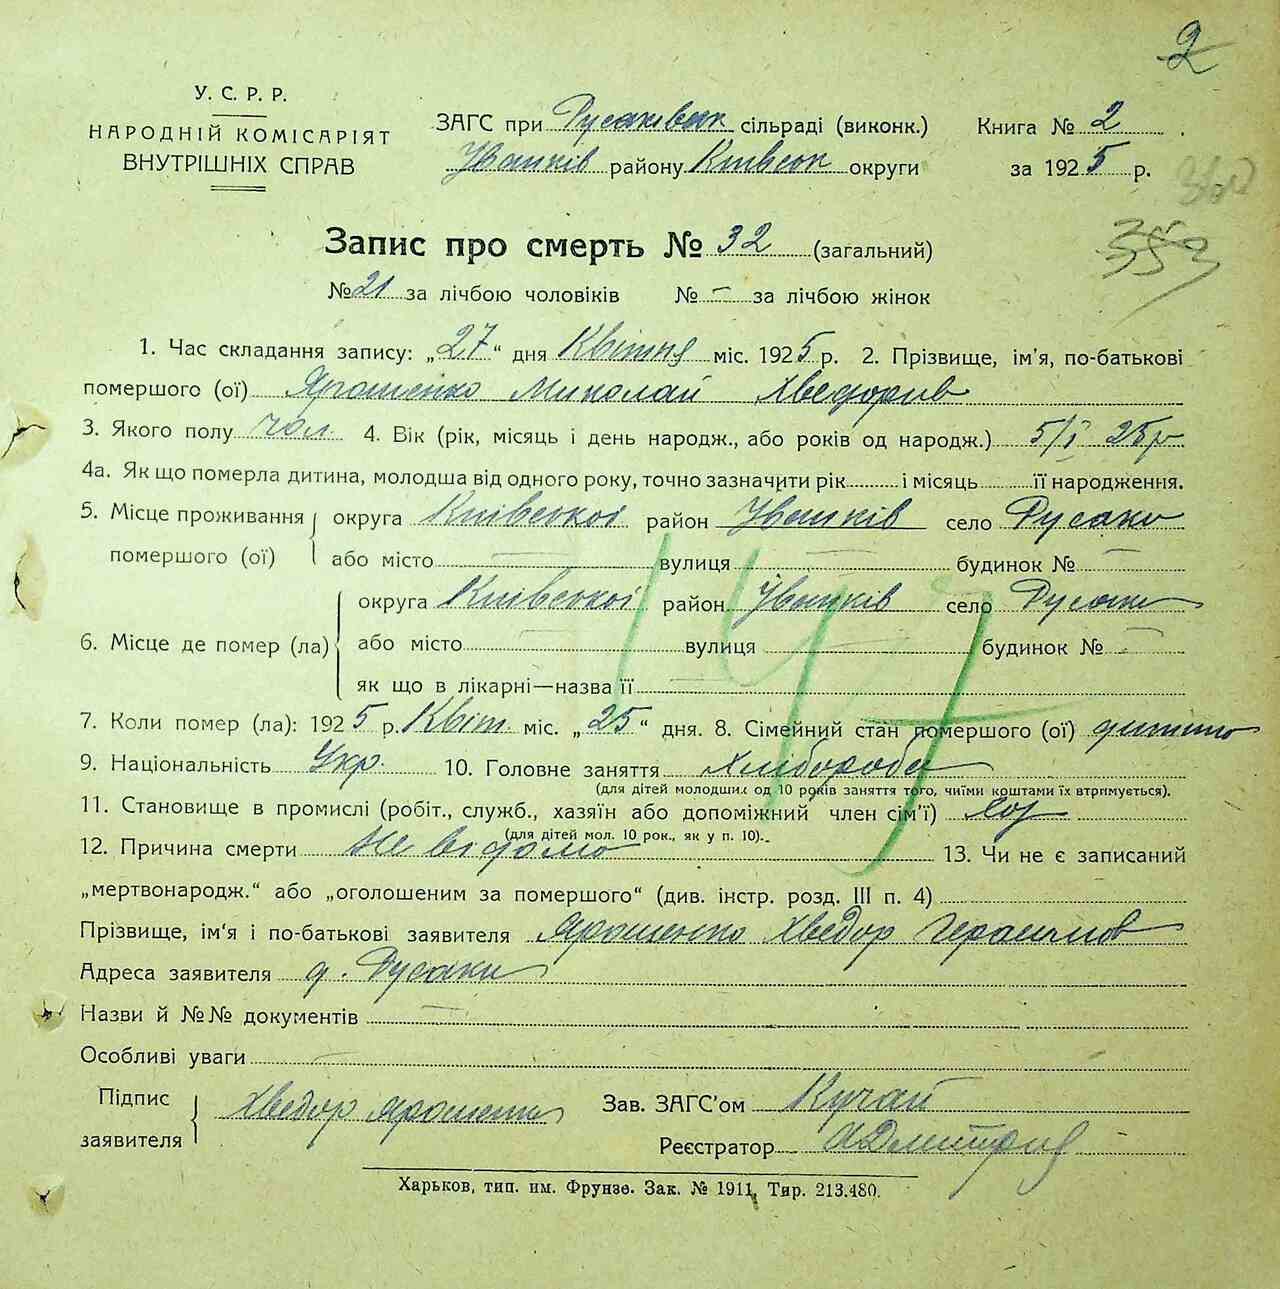 2
У. С. Р. Р.
НАРОДНІЙ КОМІСАРІЯТ
ВНУТРІШНІХ СПРАВ
ЗАГС при Русаківськ сільраді (виконк.)
Іванків району Київськ округи
Книга № 2
за 1925 р.
360
353
Запис про смерть № 32 (загальний)
№ 21 за лічбою чоловіків № – за лічбою жінок
1. Час складання запису: „27“ дня Квітня міс. 1925 р. 2. Прізвище, ім'я, по-батькові
помершого (ої) Ярошенко Миколай Хведорив
3. Якого полу чол 4. Вік (рік, місяць і день народж., або років од народж.) 5/I 25р
4а. Як що померла дитина, молодша від одного року, точно зазначити рік і місяць її народження.
5. Місце проживання помершого (ої) округа Київської район Іванків село Русаки
або місто – вулиця – будинок № –
6. Місце де помер (ла) округа Київської район Іванків село Русаки
або місто – вулиця – будинок № –
як що в лікарні—назва її
147
7. Коли помер (ла): 1925 р. Квіт. міс. „25“ дня. 8. Сімейний стан помершого (ої) дитина
9. Національність Укр. 10. Головне заняття Хлібороб
(для дітей молодших од 10 років заняття того, чиїми коштами їх втримується).
11. Становище в промислі (робіт., служб., хазяїн або допоміжний член сім'ї) хоз
(для дітей мол. 10 рок., як у п. 10).
12. Причина смерти Не відомо 13. Чи не є записаний
„мертвонародж.“ або „оголошеним за помершого“ (див. інстр. розд. III п. 4)
Прізвище, ім'я і по-батькові заявителя Ярошенко Хведор Герасимов
Адреса заявителя д. Русаки
Назви й №№ документів –
Особливі уваги –
Підпис заявителя Хведор Ярошенко
Зав. ЗАГС'ом Кучай
Реєстратор
Харьков, тип. им. Фрунзе. Зак. № 1911, Тир. 213.480.